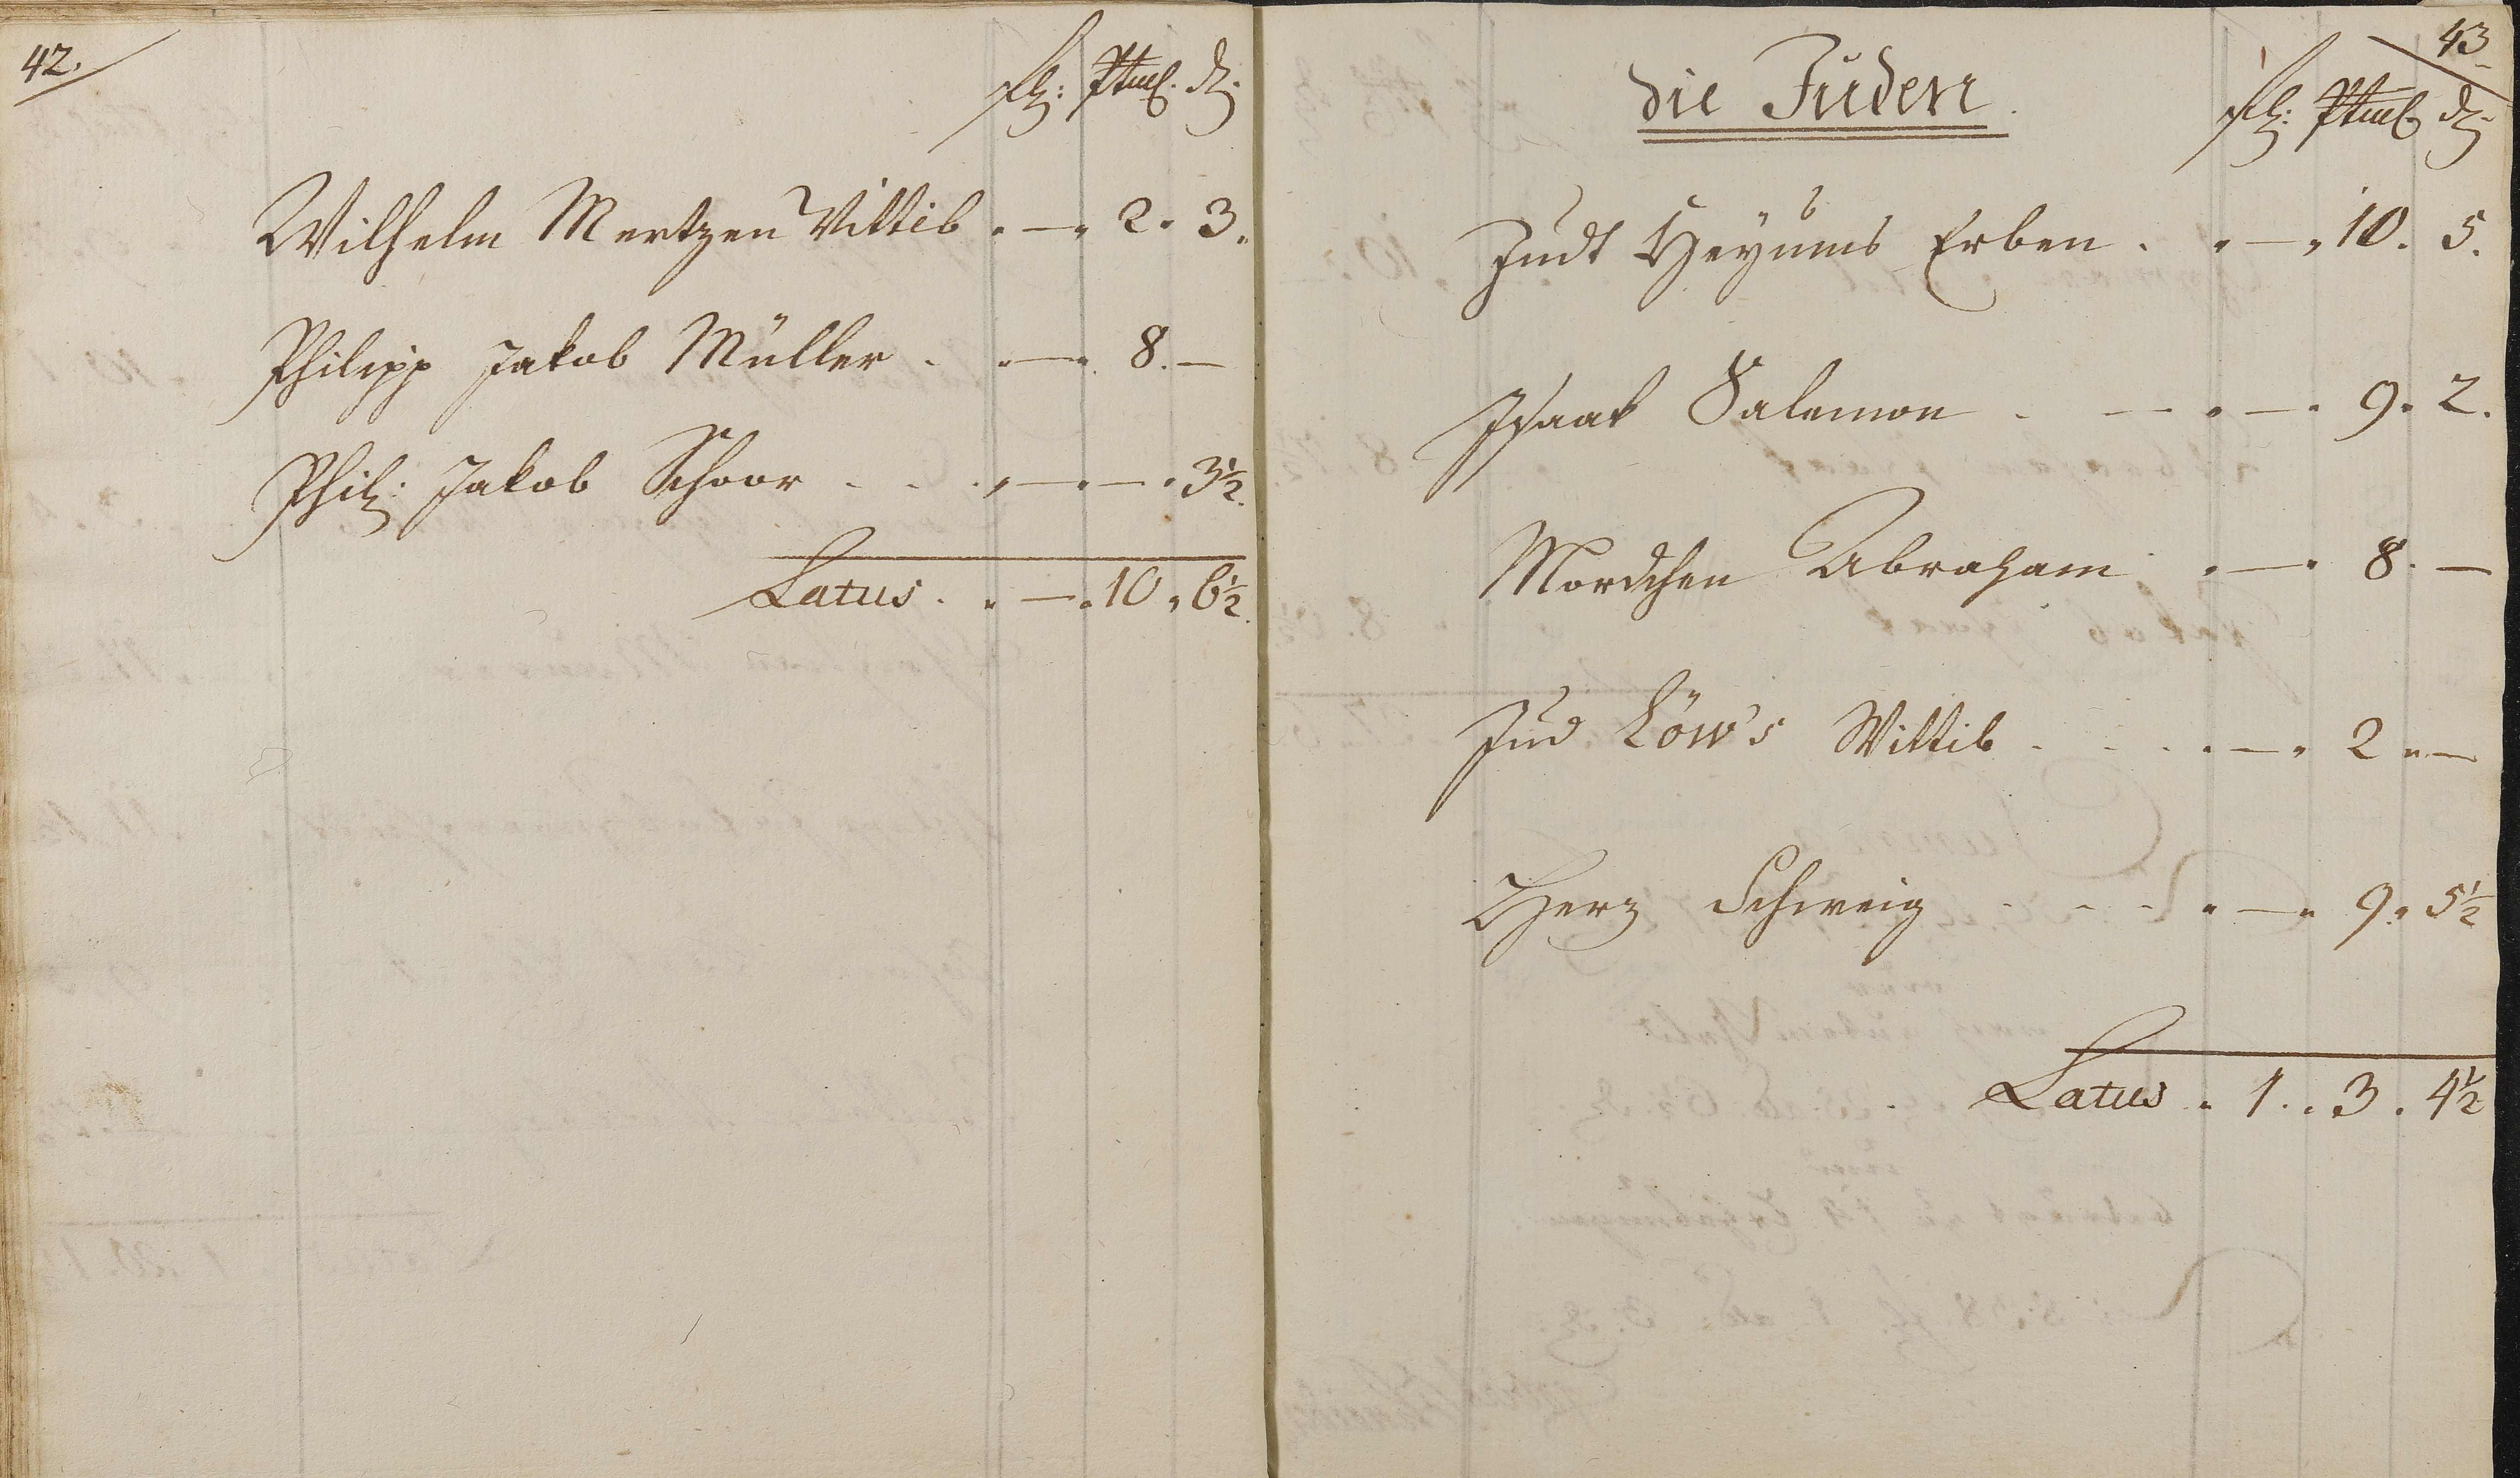 42.
fl: Stuel. dl.
Wilhelm Mertzen Wittib . — . 2. 3.
Philipp Jakob Müller . . — . 8. —
Phil: Jakob Schoor . . . — . — . 3½.
Latus . . — . 10. 6½.
43
die Juden.
fl: Stuel. dl.
Judt Heyums Erben . . — . 10. 5.
Isaak Salamon . — . — . 9. 2.
Mordchen Abraham . — . 8. —
Jud Löw's Wittib . . . . — . 2 . —
Herz Schweig . . . . — . 9. 5½
Latus . 1 . . 3 . 4½